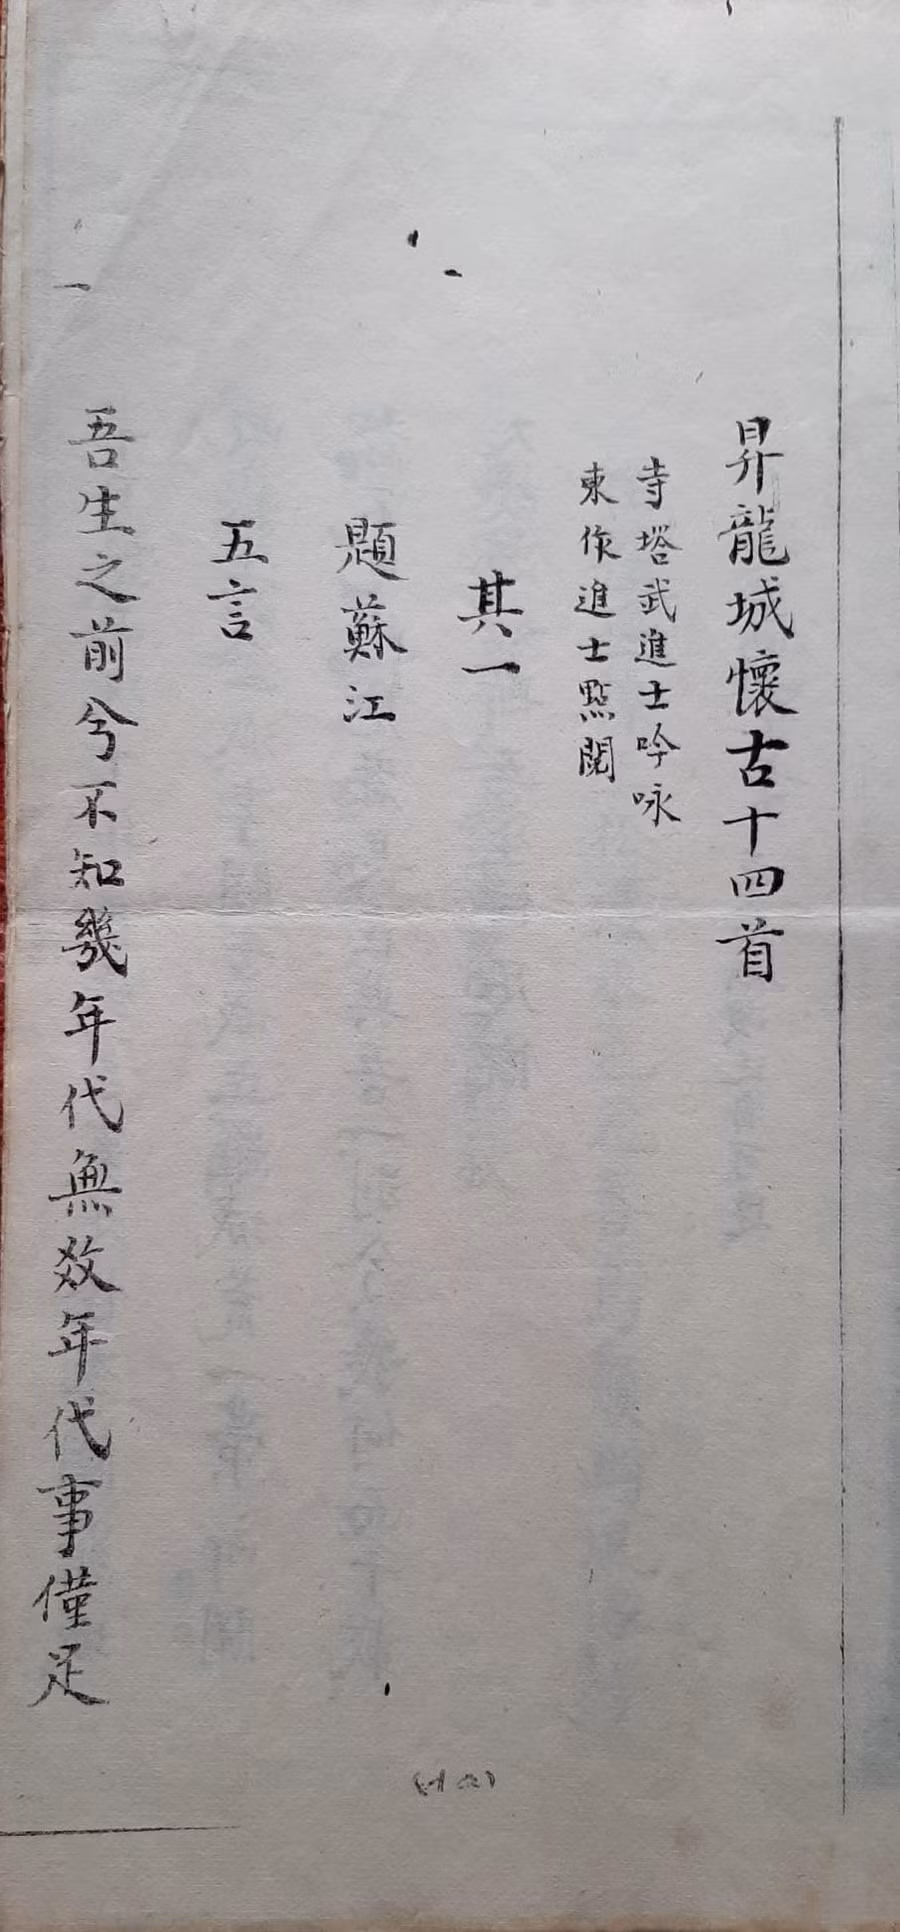 昇龍城懷古十四首
寺塔武進士吟咏
東作進士㸃閱
其一
題蘇江
五言
吾生之前兮不知幾年代無效年代事僅足
一